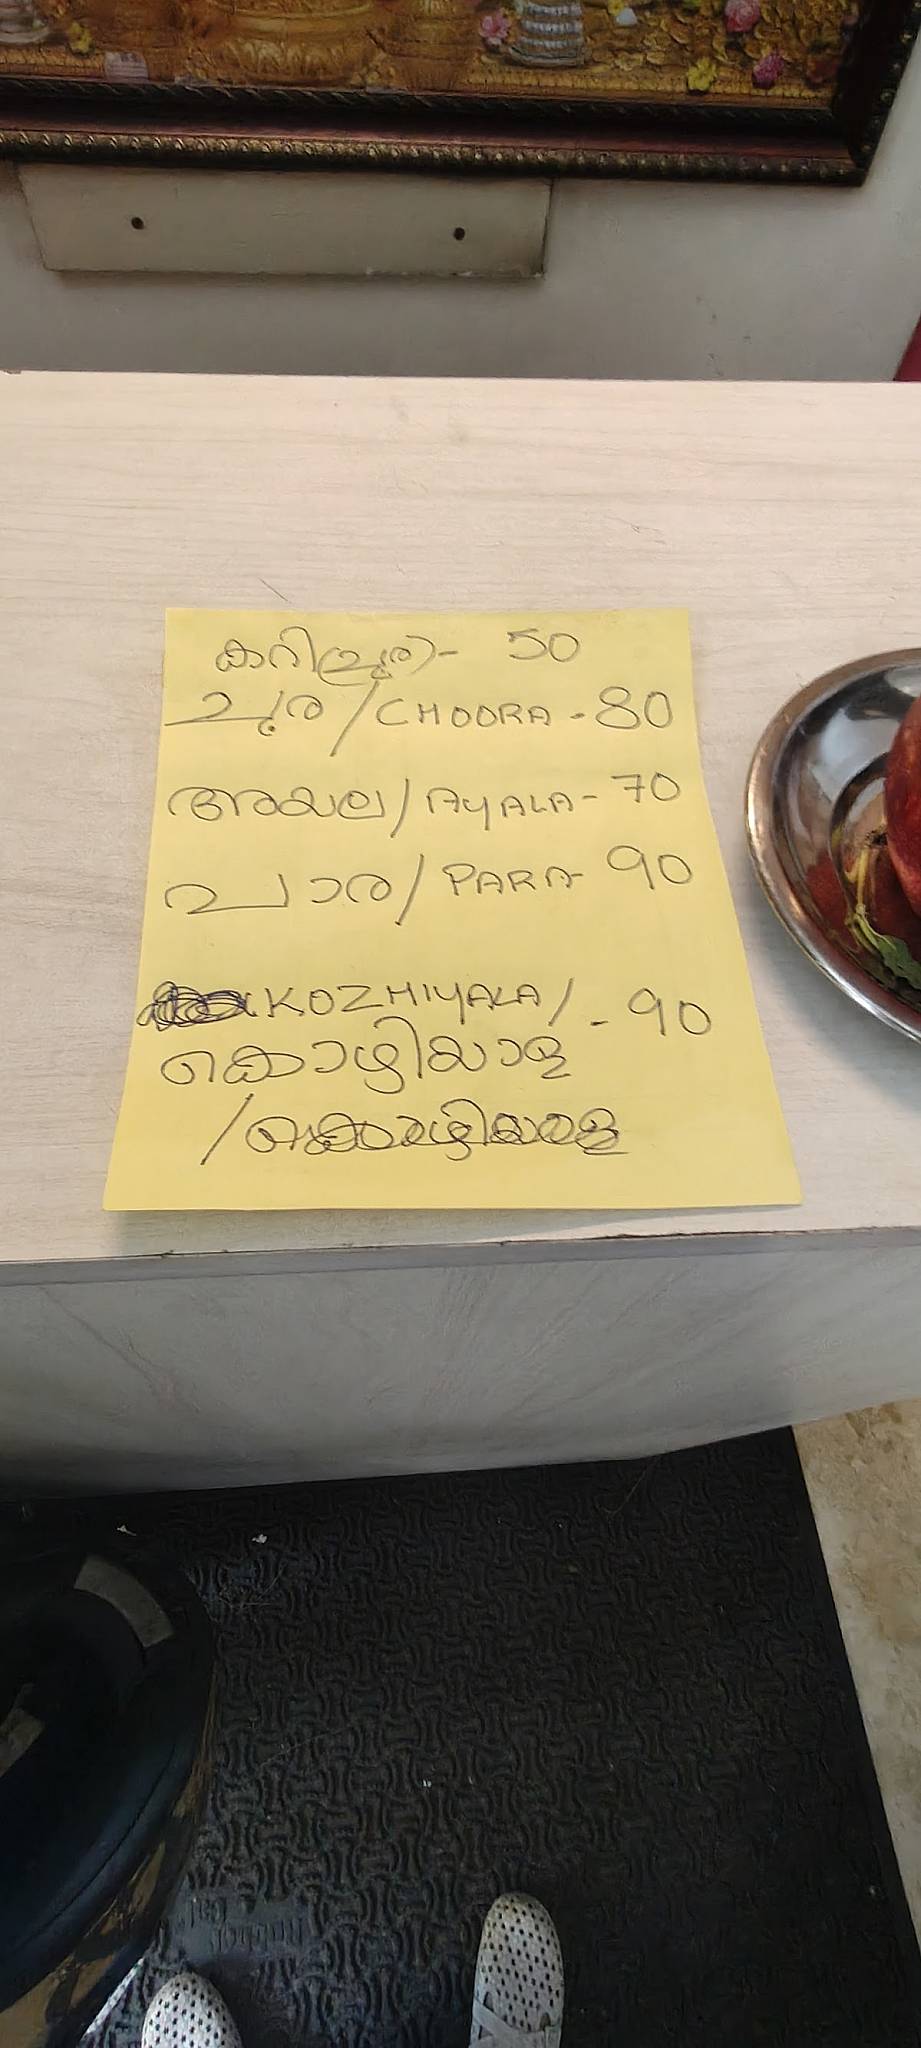 കറി(ചൂര)- 50
ചൂര / CHOORA - 80
അയല / AYALA - 70
പാര / PARA - 90
KOZHIYALA / - 90
കൊഴിയാള
/